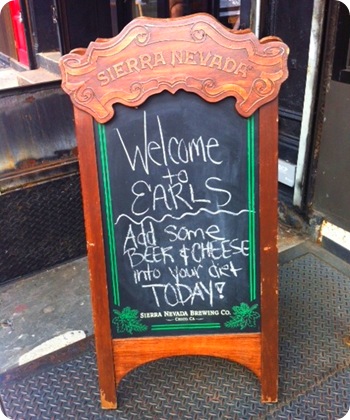 SIERRA NEVADA
Welcome
to
EARLS
Add some
BEER & CHEESE
into your diet
TODAY!
SIERRA NEVADA BREWING CO.
CHICO, CA